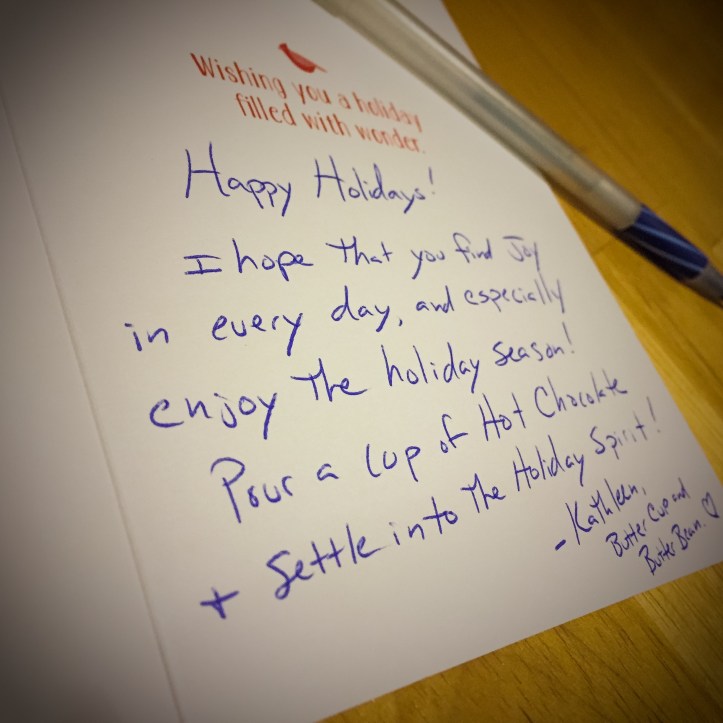 Wishing you a holiday
filled with wonder.
Happy Holidays!
I hope that you find Joy
in every day, and especially
enjoy the holiday season!
Pour a cup of Hot Chocolate
+ Settle into the Holiday Spirit!
- Kathleen,
Butter Cup and
Butter Bean. ♡